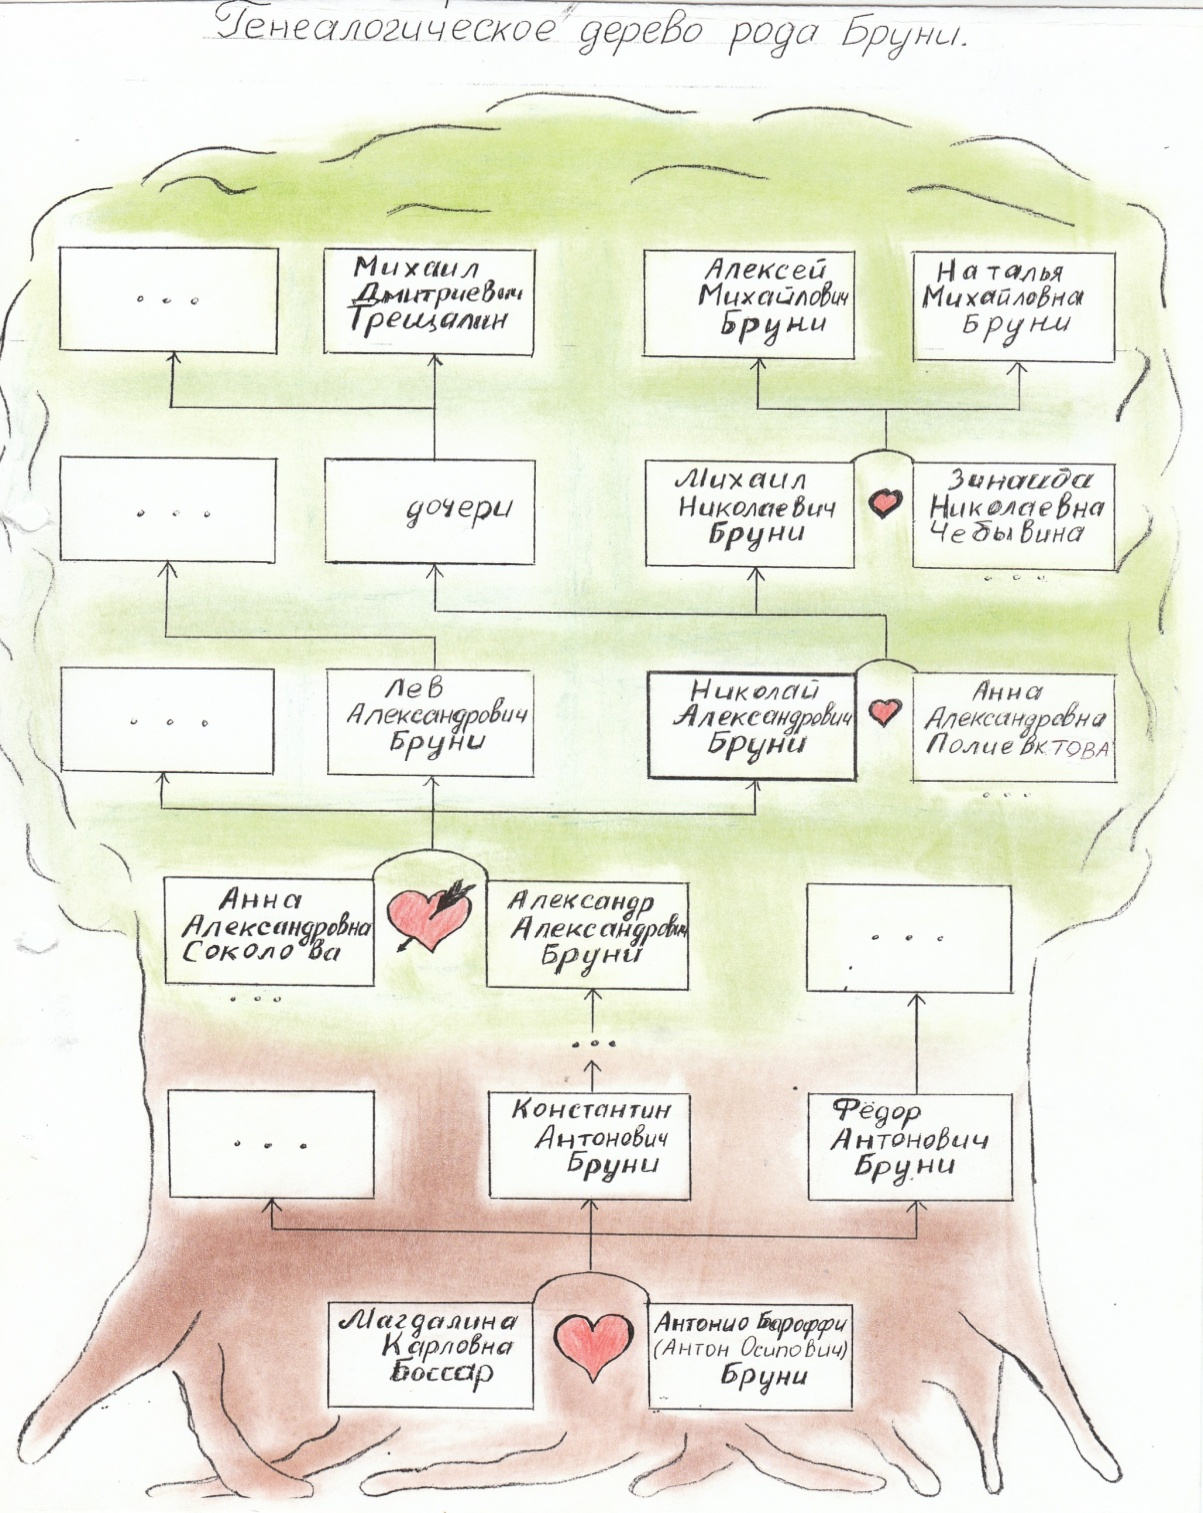 Генеалогическое дерево рода Бруни.
. . .
Михаил
Дмитриевич
Трещалин
Алексей
Михайлович
Бруни
Наталья
Михайловна
Бруни
. . .
дочери
Михаил
Николаевич
Бруни
Зинаида
Николаевна
Чебывина
. . .
. . .
Лев
Александрович
Бруни
Николай
Александрович
Бруни
Анна
Александровна
Полиевктова
. . .
Анна
Александровна
Соколова
. . .
Александр
Александрович
Бруни
. . .
. . .
. . .
Константин
Антонович
Бруни
Фёдор
Антонович
Бруни
Магдалина
Карловна
Боссар
Антонио Бароффи
(Антон Осипович)
Бруни